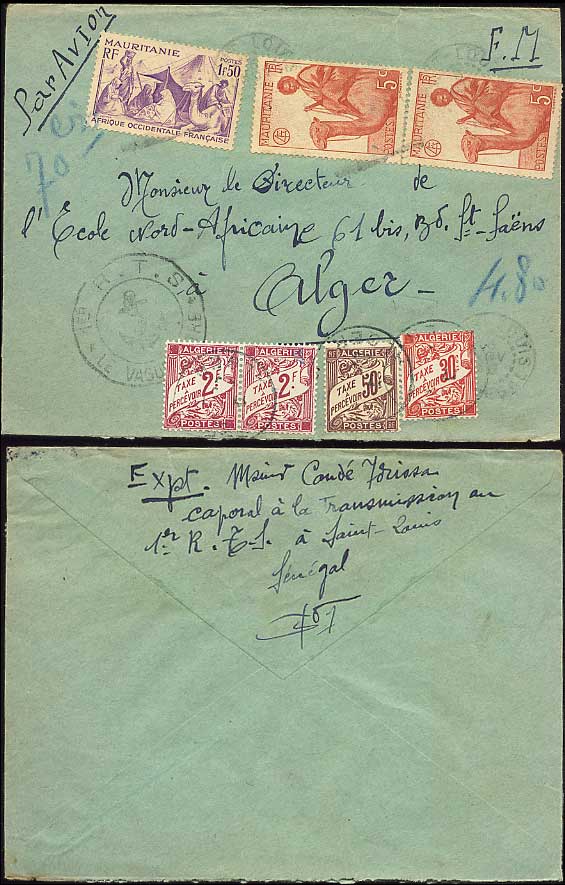 Par Avion
F.M
MAURITANIE
RF
POSTES
1F50
AFRIQUE OCCIDENTALE FRANÇAISE
MAURITANIE
5c
POSTES
MAURITANIE
5c
POSTES
70
Monsieur le Directeur de
l'École Nord-Africaine 61 bis, Bd. St-Saëns
à
Alger-
4.80
1er R.T.S.
ALGÉRIE
TAXE A PERCEVOIR
2F
POSTES
ALGÉRIE
TAXE A PERCEVOIR
2F
POSTES
ALGÉRIE
TAXE A PERCEVOIR
50c
POSTES
ALGÉRIE
TAXE A PERCEVOIR
30c
POSTES
Expt. Condé Idrissa
caporal à la Transmission au
1.er R.T.S. à Saint-Louis
Sénégal